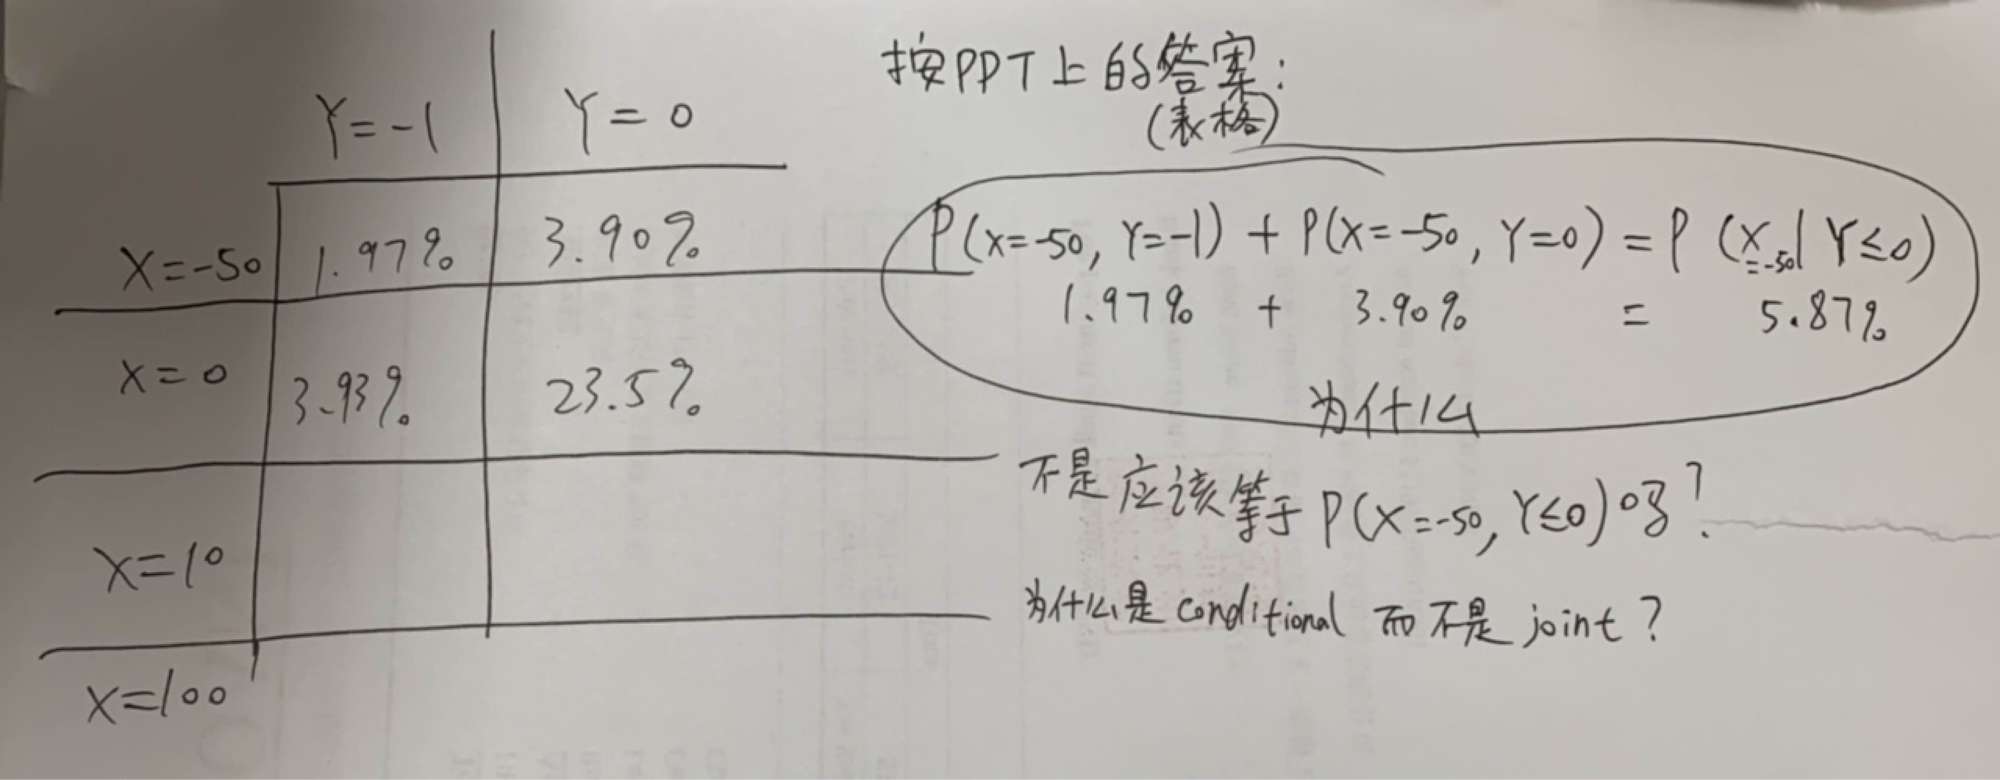 Y=-1 Y=0
X=-50 1.97% 3.90%
X=0 3.93% 23.5%
X=10
X=100
按PPT上的答案:
(表格)
P(X=-50, Y=-1) + P(X=-50, Y=0) = P(X=-50| Y≤0)
1.97% + 3.90% = 5.87%
为什么
不是应该等于P(X=-50, Y≤0)吗?
为什么是conditional而不是joint?